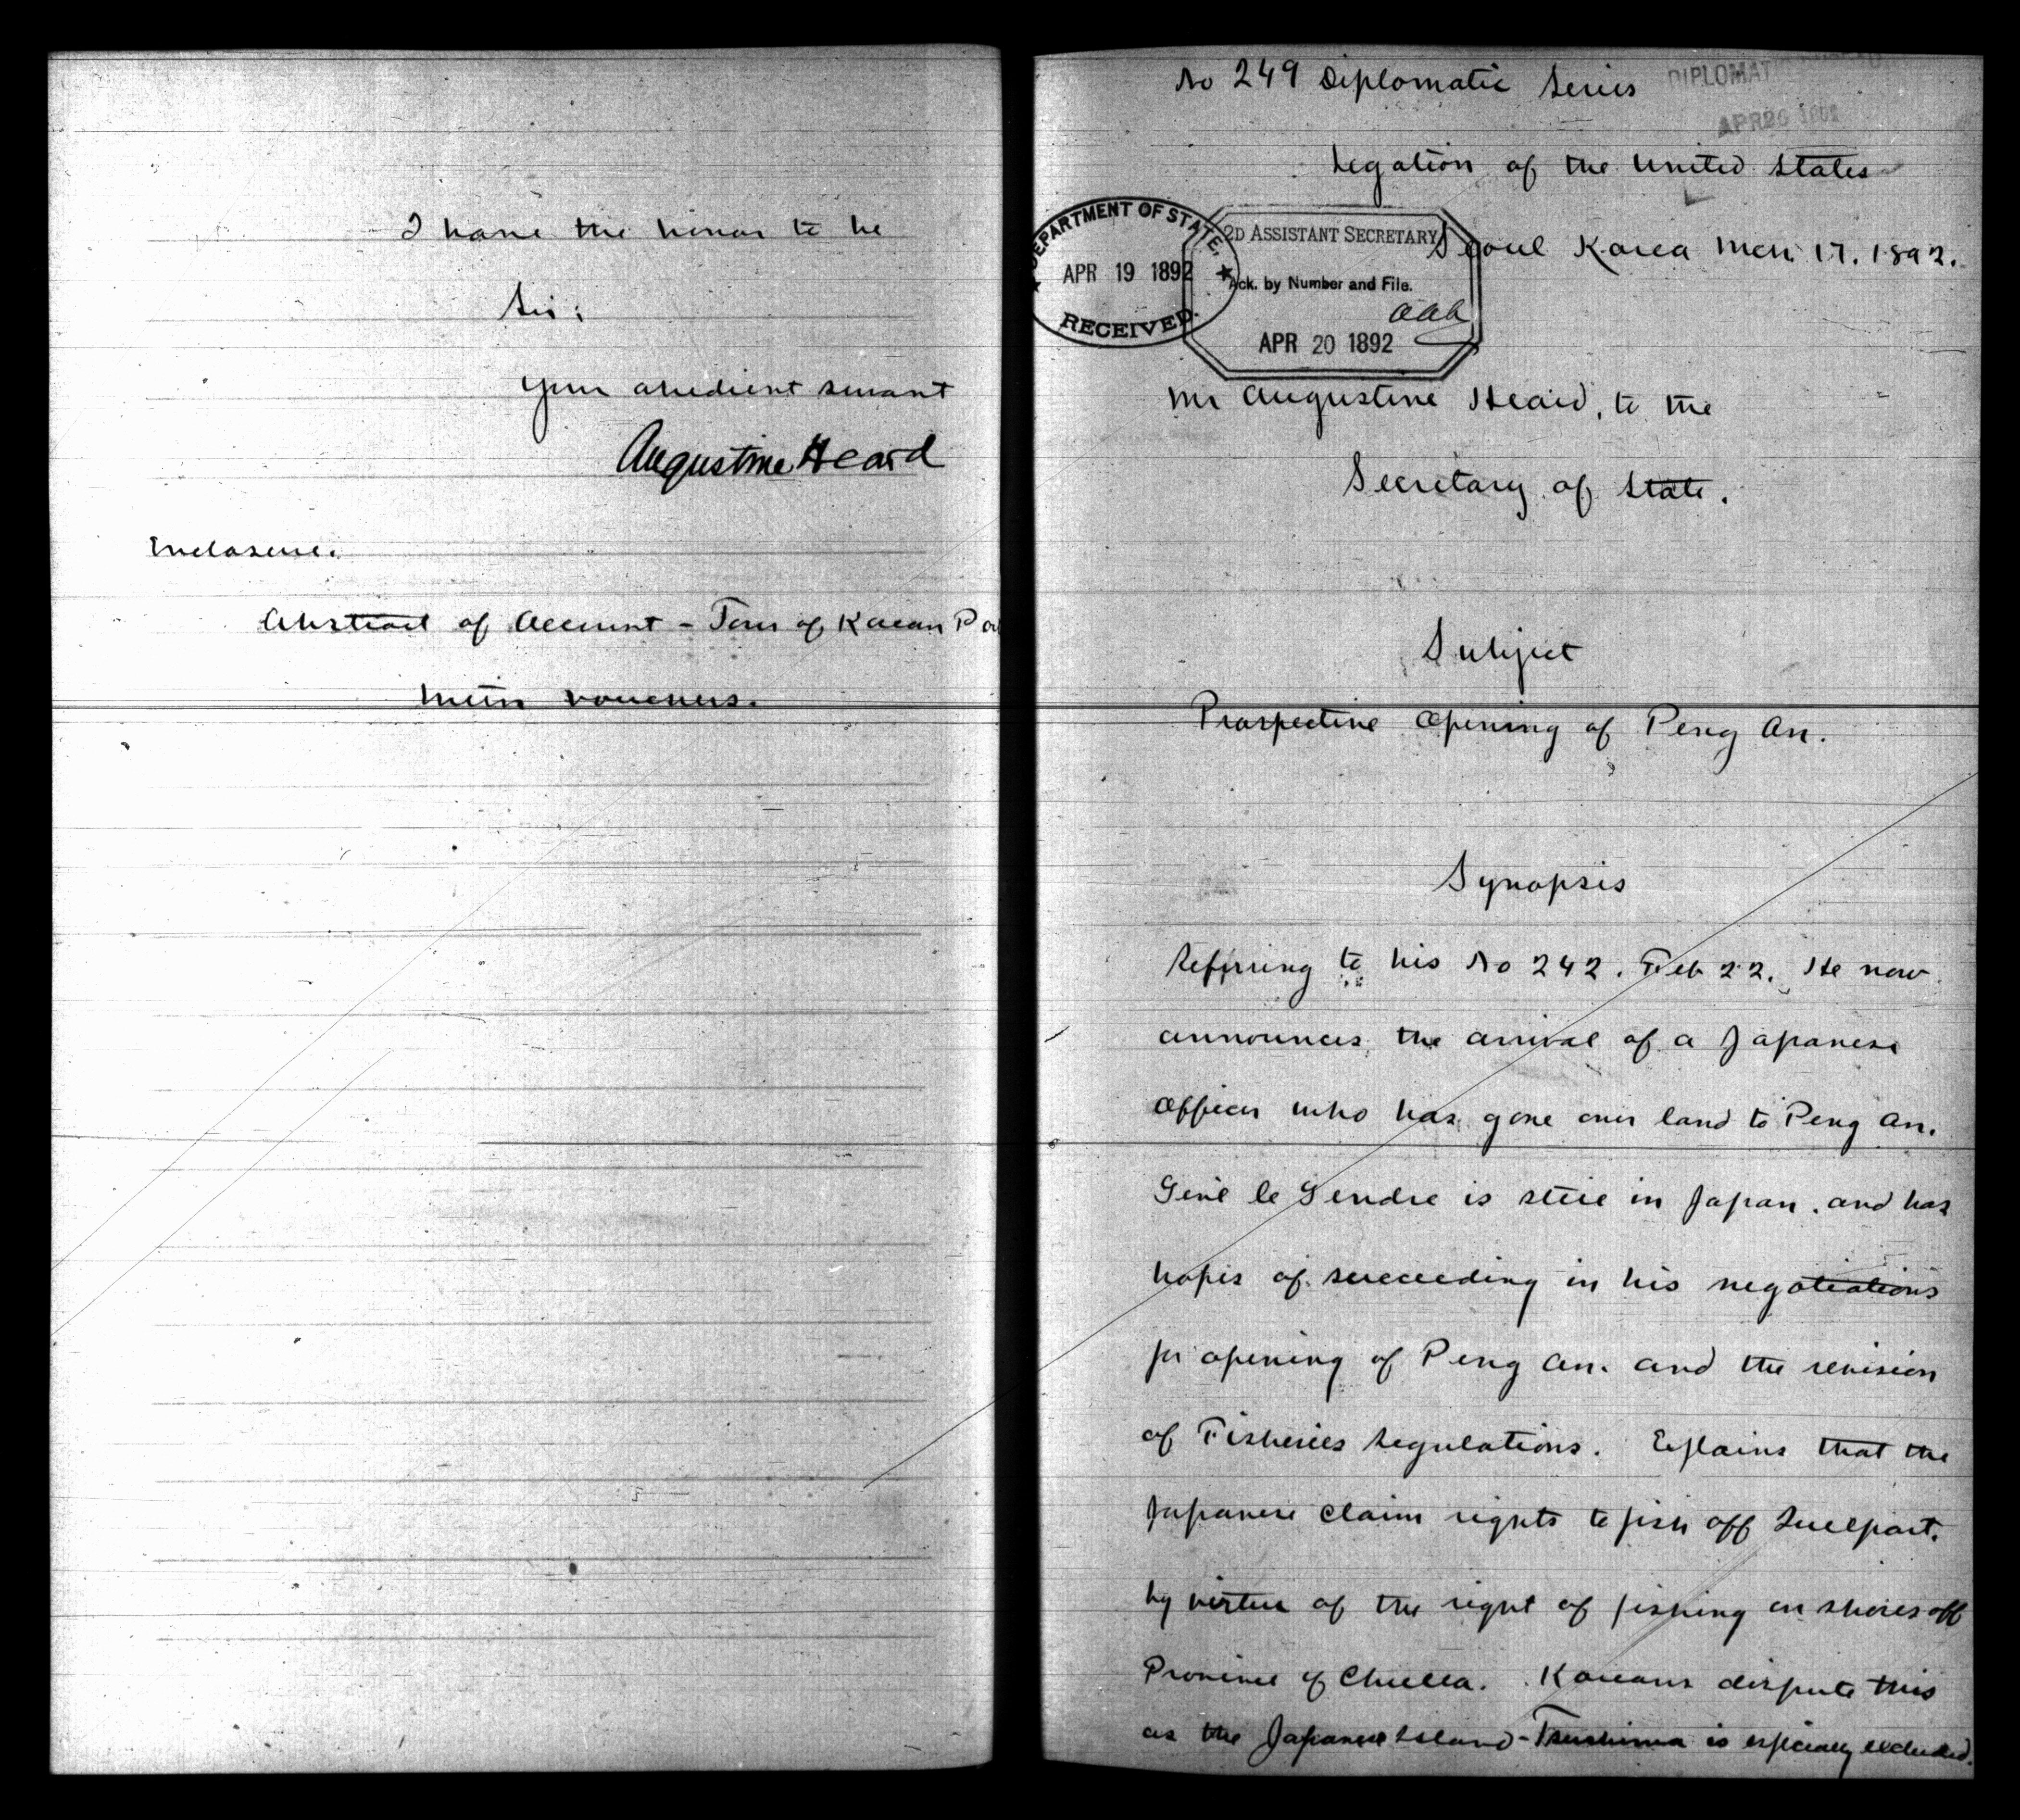 I have the honor to be
Sir:
Your obedient servant
Augustine Heard
Enclosure.
Abstract of Account - Tour of Korean Por
with vouchers.
No 249 Diplomatic Series
DIPLOMAT
APR 20 1892
Legation of the United States
Seoul Korea Mch 17. 1892.
DEPARTMENT OF STATE,
APR 19 1892
RECEIVED.
2D ASSISTANT SECRETARY
Ack. by Number and File.
APR 20 1892
Mr Augustine Heard, to the
Secretary of State.
Subject
Prospective Opening of Peng An.
Synopsis
Referring to his No 242. Feb 22. He now
announces the arrival of a Japanese
Officer who has gone over land to Peng An.
Genl le Gendre is still in Japan. and has
hopes of succeeding in his negotiations
for opening of Peng An. and the revision
of Fisheries Regulations. Explains that the
Japanese claim rights to fish off Quelpart.
by virtue of the right of fishing on shores off
Province of Chulla. Koreans dispute this
as the Japanese Island - Tsushima is especially excluded.